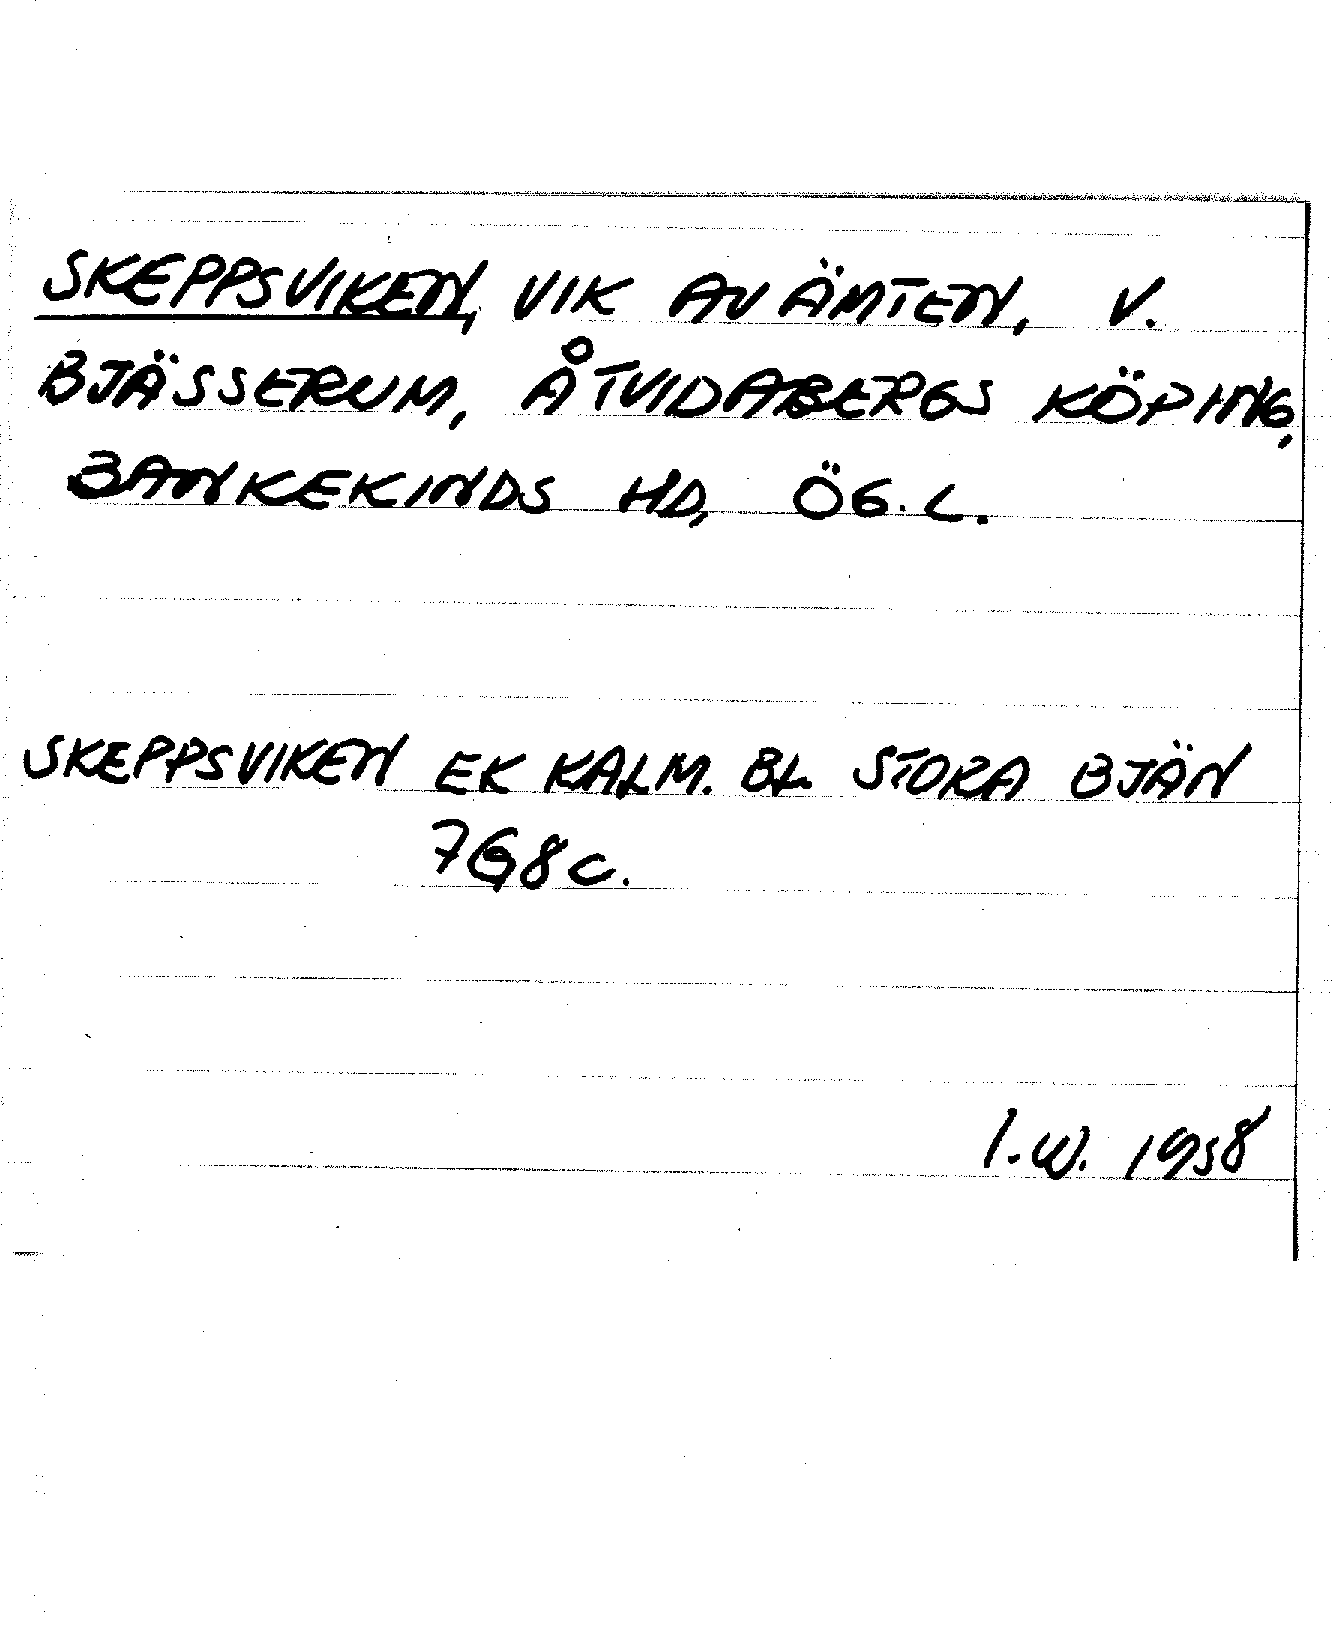 SKEPPSVIKEN, VIK AV ÄMTEN, V.
BJÄSSERUM, ÅTVIDABERGS KÖPING,
BANKEKINDS HD, ÖG. L.
SKEPPSVIKEN EK KALM. BL. STORA BJÄN
7G8c.
I.W. 1958